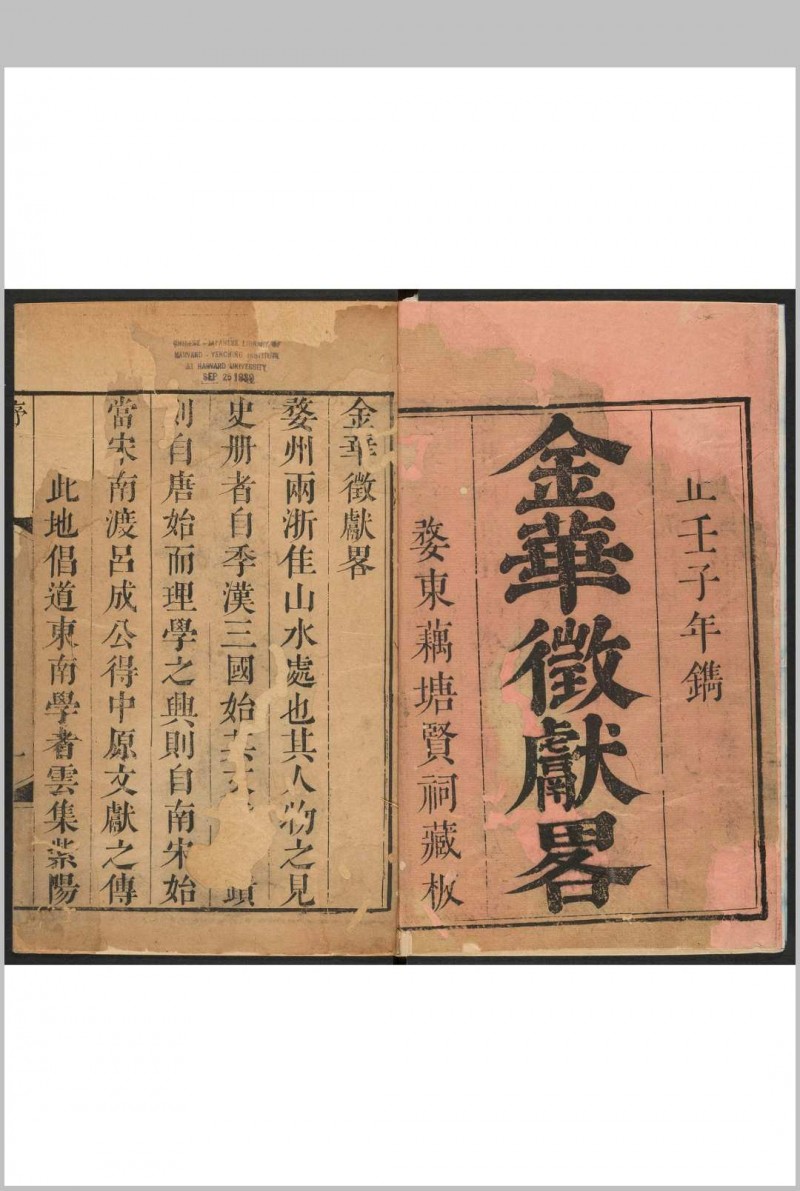 壬子年鐫
金華徵獻畧
婺東藕塘賢祠藏板
CHINESE - JAPANESE LIBRARY OF
HARVARD - YENCHING INSTITUTE
AT HARVARD UNIVERSITY
SEP 25 1939
金華徵獻畧
婺州兩浙佳山水處也其人物之見
史册者自季漢三國始其
則自唐始而理學之興則自南宋始
當宋南渡呂成公得中原文獻之傳
此地倡道東南學者雲集紫陽
序